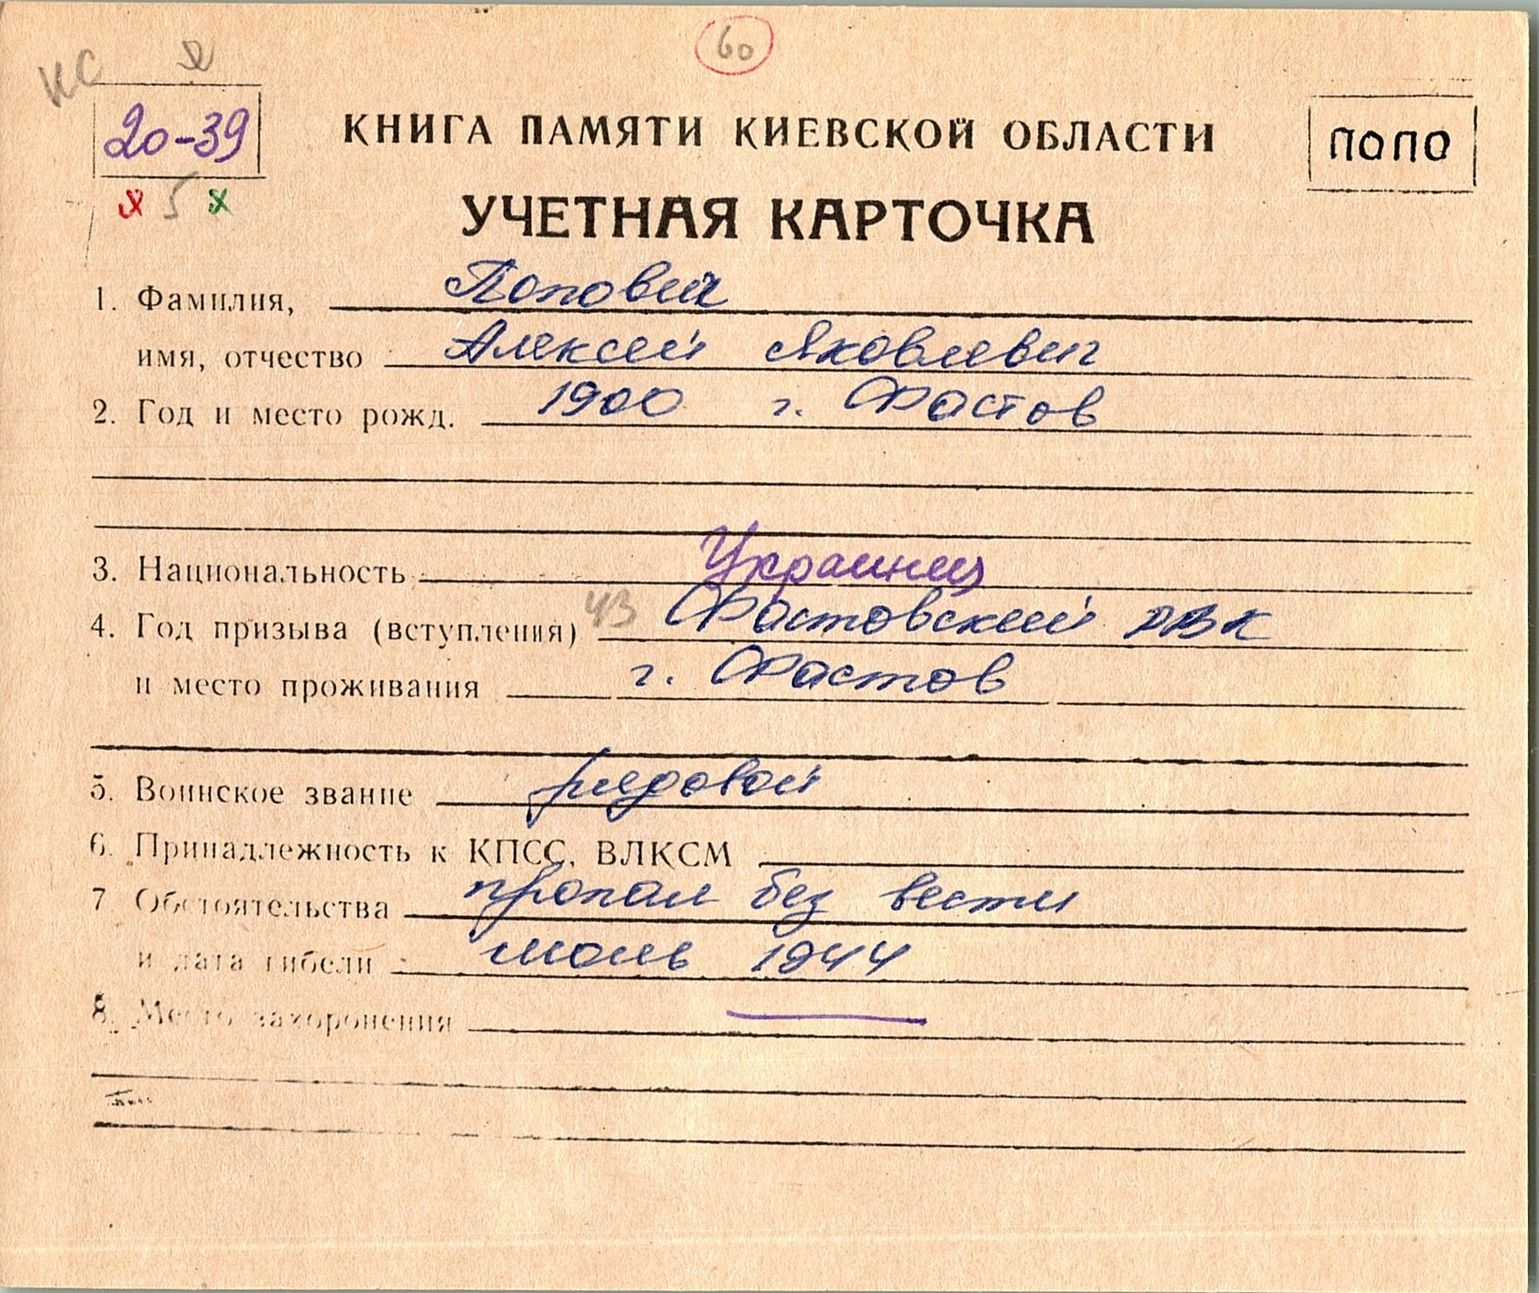 КС Я
60
20-39
КНИГА ПАМЯТИ КИЕВСКОЙ ОБЛАСТИ
ПОПО
5
УЧЕТНАЯ КАРТОЧКА
1. Фамилия, Попович
имя, отчество Алексей Яковлевич
2. Год и место рожд. 1900 г. Фастов
3. Национальность Украинец
4. Год призыва (вступления) 43 Фастовский РВК
и место проживания г. Фастов
5. Воинское звание рядовой
6. Принадлежность к КПСС, ВЛКСМ
7. Обстоятельства пропал без вести
и дата гибели июль 1944
8. Место захоронения —